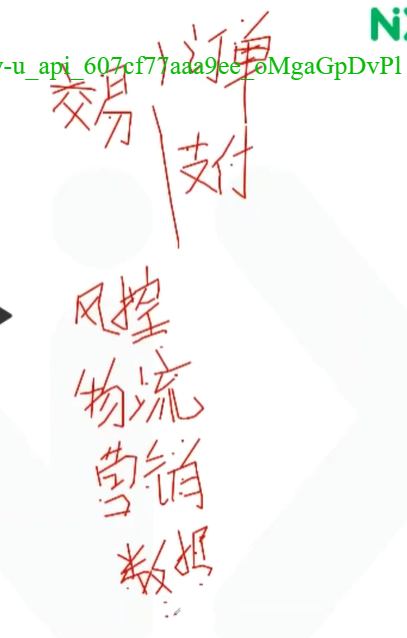 N
y-u_api_607cf77aaa9ee_oMgaGpDvPl
订单
交易
支付
风控
物流
营销
数据